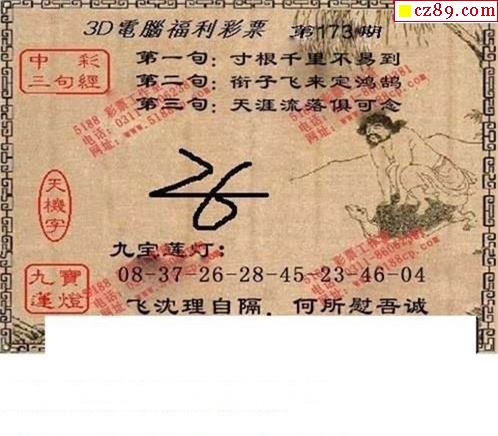 cz89.com
3D電腦福利彩票 第173期
中彩
三句經
第一句：寸根千里不易到
第二句：衔子飞来定鸿鹄
第三句：天涯流落俱可念
天機字
26
九宝莲灯：
九寶
蓮燈
08-37-26-28-45-23-46-04
飞沈理自隔．何所慰吾诚